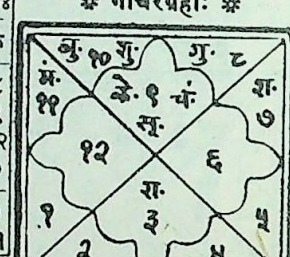 गोचरग्रहाः
बु. १० शु. गु. ८
मं. ११ के. ९ चं. श. ७
सू.
१२ ६
रा.
१ ३ ५
२ ४